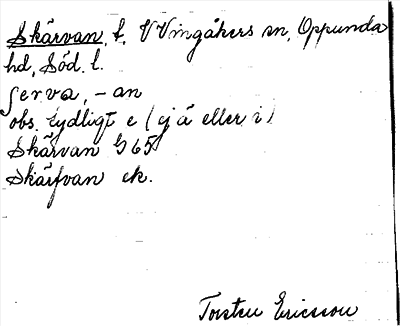 Skärvan, t. V Vingåkers sn, Oppunda
hd, Söd. l.
ʃerva, -an
obs. tydligt e (ej ä eller i)
Skärvan G 65
Skärfvan ek.
Torsten Ericsson